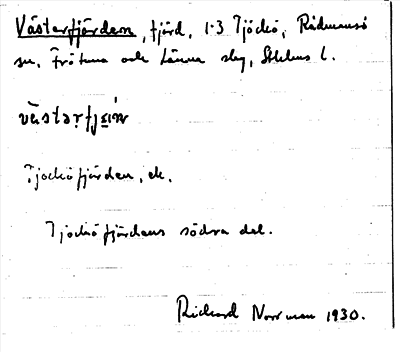 Västerfjärden, fjärd, 1-3 Tjockö, Rådmansö
sn, Frötuna och Länna slg, Sthlms l.
västərfjɛ̱n
Tjocköfjärden, ek.
Tjocköfjärdens södra del.
Rickard Norrman 1930.